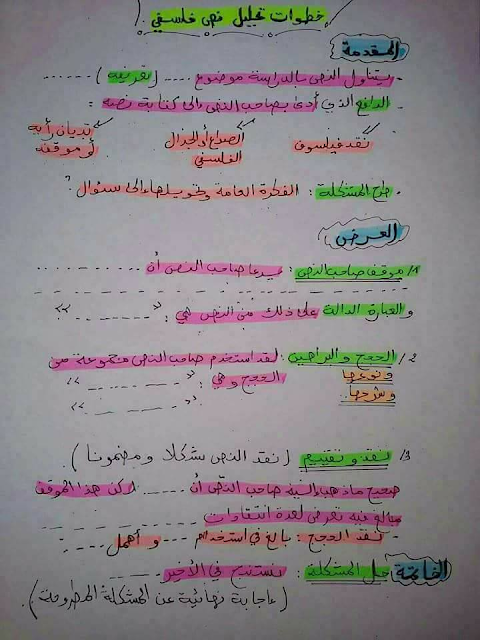 خطوات تحليل نص فلسفي
المقدمة
- يتناول النص بالدراسة موضوع .... (تعريفه) ......
- الدافع الذي أدى بصاحب النص إلى كتابة نصه :
نقد فيلسوف
الصراع أو الجدال الفلسفي
تبيان رأيه أو موقفه
- طرح المشكلة : الفكرة العامة وتحويلها إلى سؤال ؟
العرض
1/ موقف صاحب النص : يدعا صاحب النص أن ..........
والعبارة الدالة على ذلك من النص هي : " ...... "
2/ الحجج والبراهين : لقد استخدم صاحب النص مجموعة من
ونوعها الحجج وهي : " ...... "
وشرحها . " ...... "
3/ نقد وتقييم (نقد النص شكلا ومضمونا) .
صحيح ما ذهب إليه صاحب النص أن ...... لكن هذا الموقف
مبالغ فيه تعرض لعدة انتقادات
- نقد الحجج : بالغ في استخدام .... و أهمل .....
الخاتمة حل المشكلة : نستنتج في الأخير
(إجابة نهائية عن المشكلة المطروحة) .